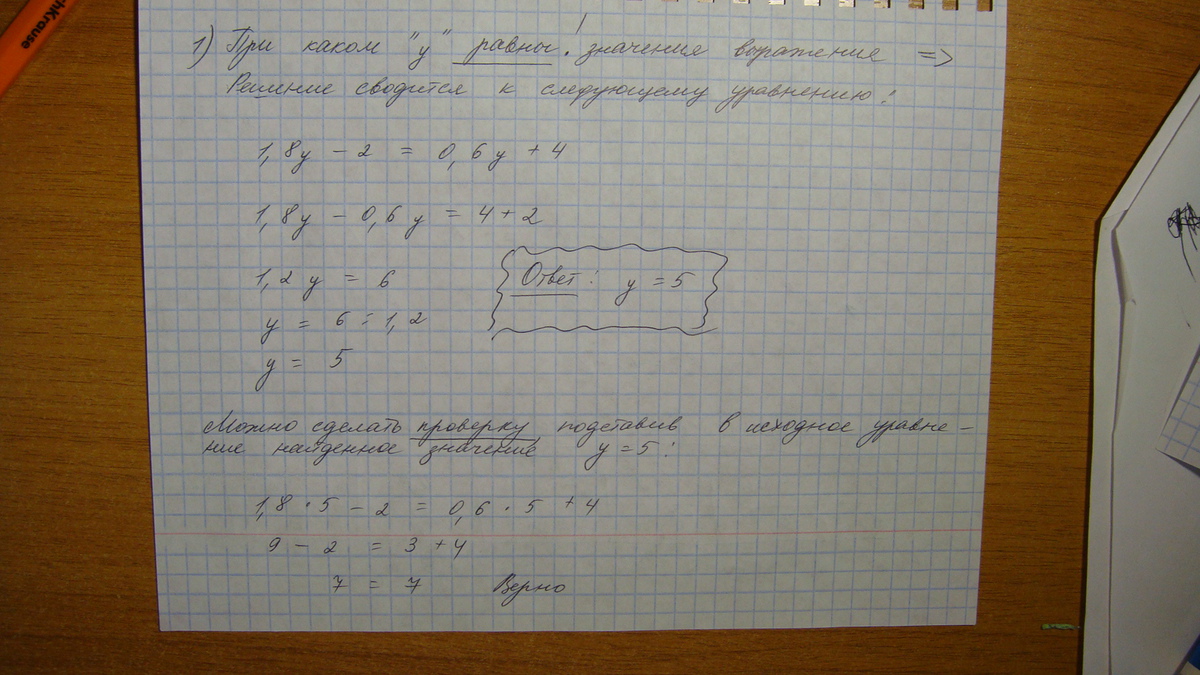 chKrause
1) При каком "у" равны! значения выражения =>
Решение сводится к следующему уравнению:
1,8у - 2 = 0,6у + 4
1,8у - 0,6у = 4 + 2
1,2у = 6
Ответ: у = 5
у = 6 : 1,2
у = 5
Можно сделать проверку подставив в исходное уравне-
ние найденное значение у = 5:
1,8 · 5 - 2 = 0,6 · 5 + 4
9 - 2 = 3 + 4
7 = 7 Верно